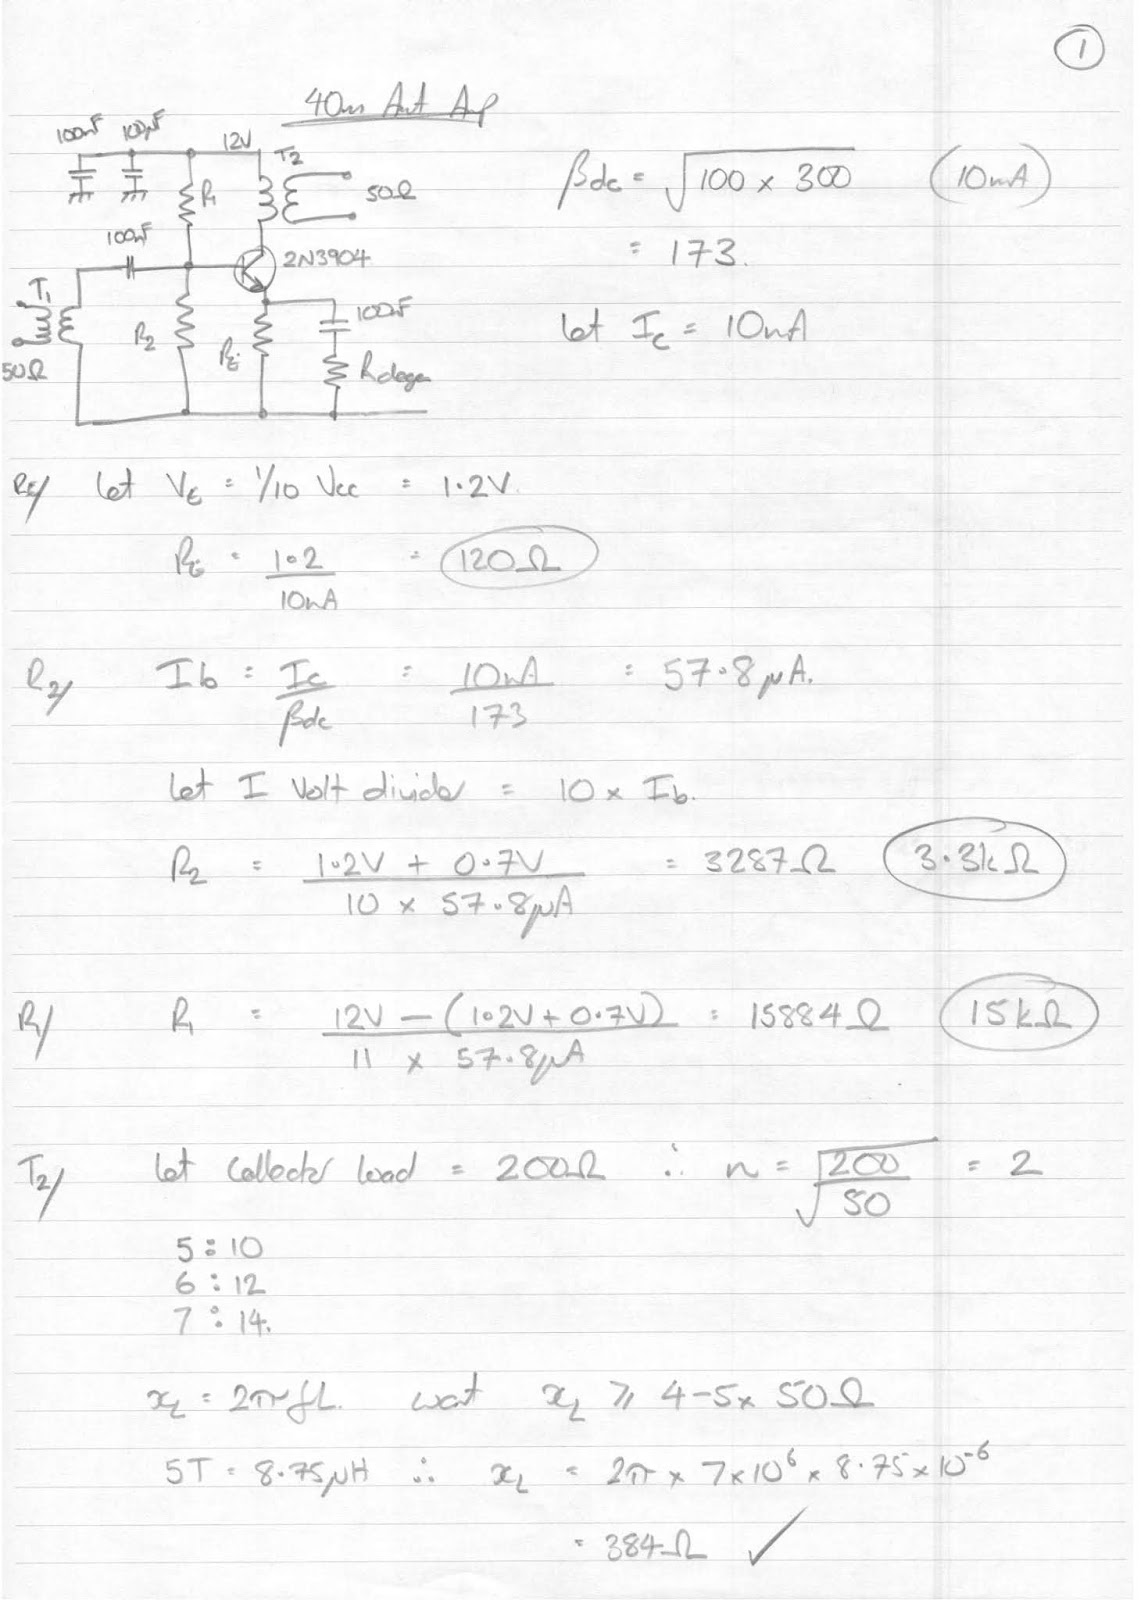 1
40m Ant Amp
100nF 100µF
12V
T2
R1
50Ω
100nF
2N3904
T1
R2
RE
100nF
Rdegen
50Ω
βdc = √100 x 300 (10mA)
= 173.
let Ic = 10mA
RE/ let VE = 1/10 Vcc = 1.2V.
RE = 1.2 / 10mA = 120Ω
R2/ Ib = Ic / βdc = 10mA / 173 = 57.8µA.
let I volt divider = 10 x Ib.
R2 = 1.2V + 0.7V / 10 x 57.8µA = 3287Ω 3.3kΩ
R1/ R1 = 12V - (1.2V + 0.7V) / 11 x 57.8µA = 15884Ω 15kΩ
T2/ let Collector load = 200Ω ∴ n = √200/50 = 2
5 : 10
6 : 12
7 : 14.
xL = 2πfL. want xL ≥ 4-5x 50Ω
5T = 8.75µH ∴ xL = 2π x 7x10⁶ x 8.75x10⁻⁶
= 384Ω ✓